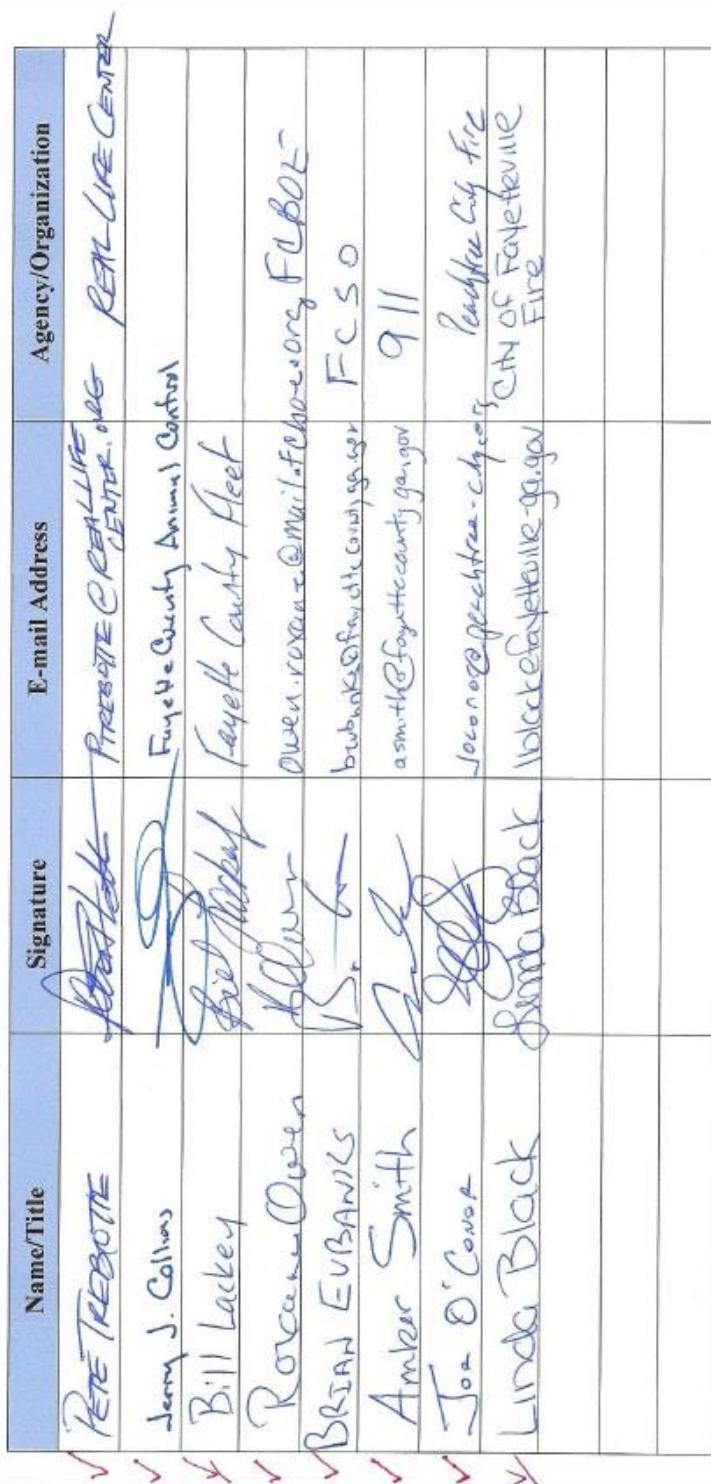 Name/Title Signature E-mail Address Agency/Organization
PETE TREBOTTE PTREBOTTE@REALLIFE CENTER.ORG REAL LIFE CENTER
Jerry J. Collins Fayette County Animal Control
Bill Lackey Bill Lackey Fayette County Fleet
Roxanne Owen ROwen owen.roxanne@mail.fcboe.org FCBOE
BRIAN EUBANKS FCSO
Amber Smith asmith@fayettecountyga.gov 911
Joe O'Conor joconor@peachtree-city.org Peachtree City Fire
Linda Black Linda Black lblack@fayetteville-ga.gov City of Fayetteville
Fire